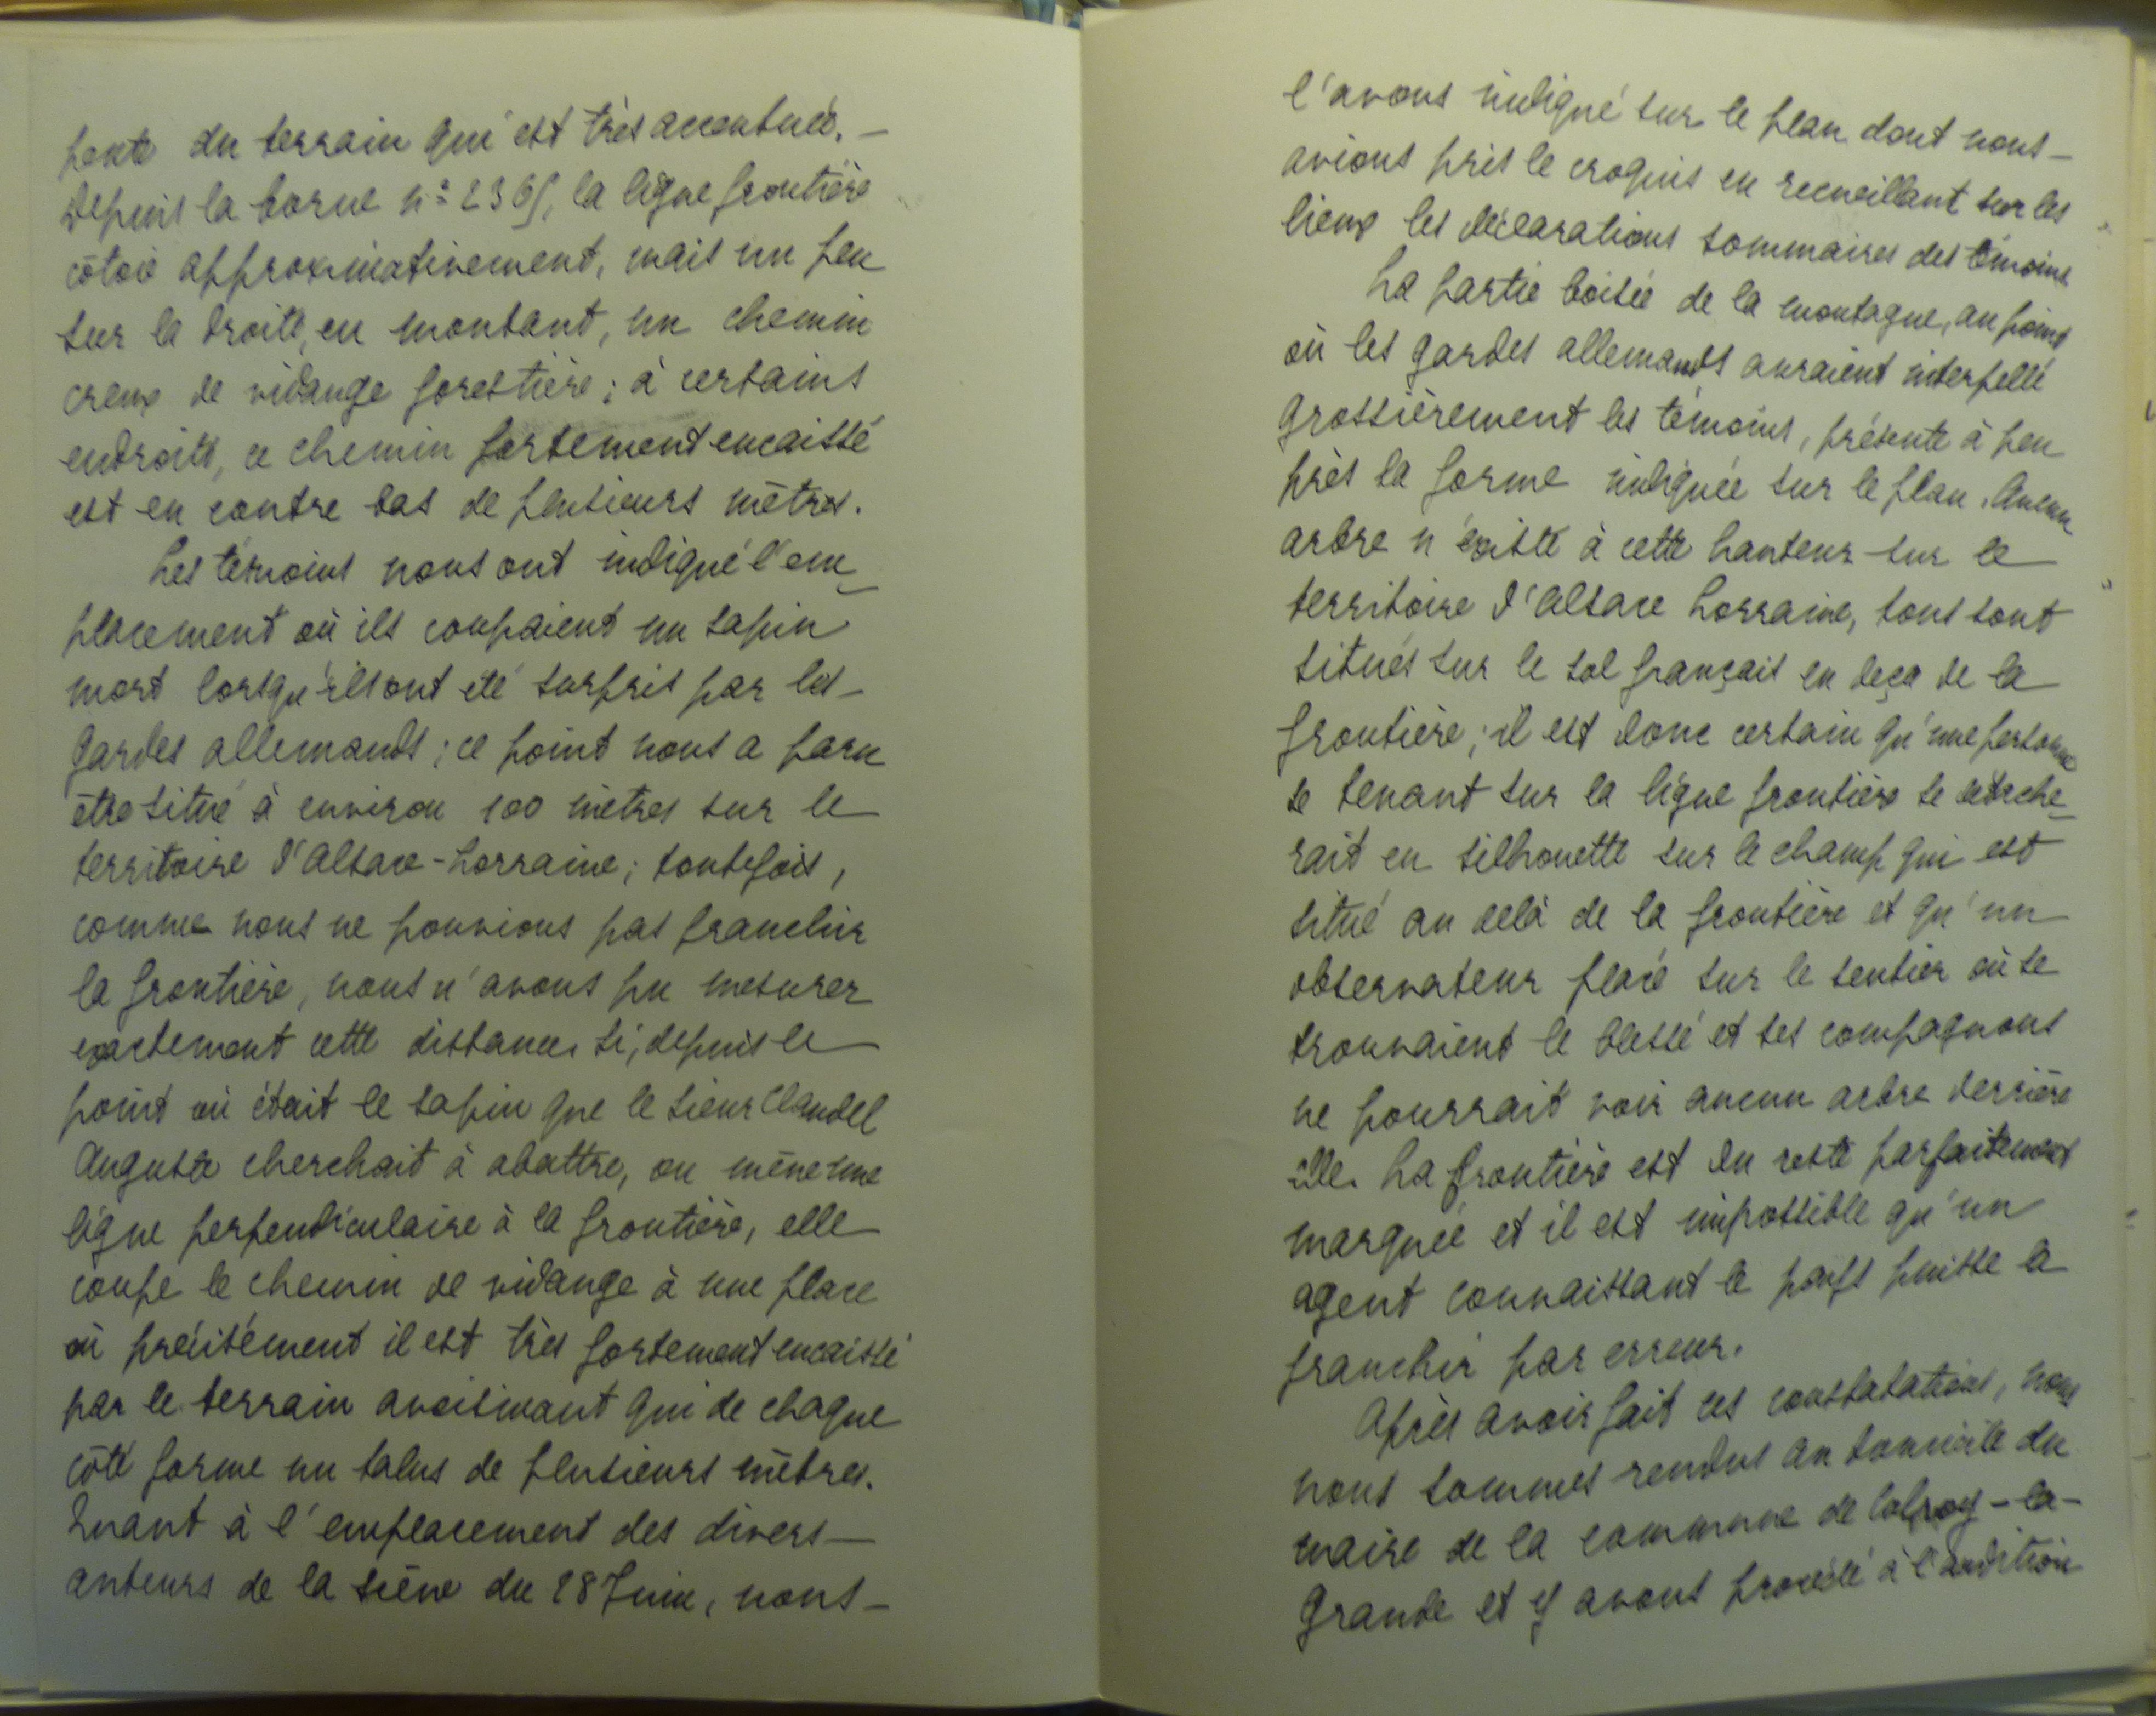 pente du terrain qui est très accentuée. —
Depuis la borne n° 2365, la ligne frontière
côtoie approximativement, mais un peu
sur la droite, en montant, un chemin
creux de vidange forestière ; à certains
endroits, ce chemin fortement encaissé
est en contre bas de plusieurs mètres.
Les témoins nous ont indiqué l'em-
placement où ils coupaient un sapin
mort lorsqu'ils ont été surpris par les —
gardes allemands ; ce point nous a paru
être situé à environ 100 mètres sur le
territoire d'Alsace-Lorraine ; toutefois,
comme nous ne pouvions pas franchir
la frontière, nous n'avons pu mesurer
exactement cette distance. Si, depuis le
point où était le sapin que le sieur Claudel
Auguste cherchait à abattre, on mène une
ligne perpendiculaire à la frontière, elle
coupe le chemin de vidange à une place
où précisément il est très fortement encaissé
par le terrain avoisinant qui de chaque
côté forme un talus de plusieurs mètres.
Quant à l'emplacement des divers —
auteurs de la scène du 28 Juin, nous —
l'avons indiqué sur le plan dont nous —
avions pris le croquis en recueillant sur les
lieux les déclarations sommaires des témoins
La partie boisée de la montagne, au point
où les gardes allemands auraient interpellé
grossièrement les témoins, présente à peu
près la forme indiquée sur le plan. Aucun
arbre n'existe à cette hauteur sur le
territoire d'Alsace Lorraine, tous sont
situés sur le sol français en deça de la
frontière ; il est donc certain qu'une personne
se tenant sur la ligne frontière se détache-
rait en silhouette sur le champ qui est
situé au delà de la frontière et qu'un
observateur placé sur le sentier où se
trouvaient le blessé et ses compagnons
ne pourrait voir aucun arbre derrière
elle. La frontière est du reste parfaitement
marquée et il est impossible qu'un
agent connaissant le pays puisse la
franchir par erreur.
Après avoir fait ces constatations, nous
nous sommes rendus au domicile du
maire de la commune de Colroy-la-
Grande et y avons procédé à l'audition